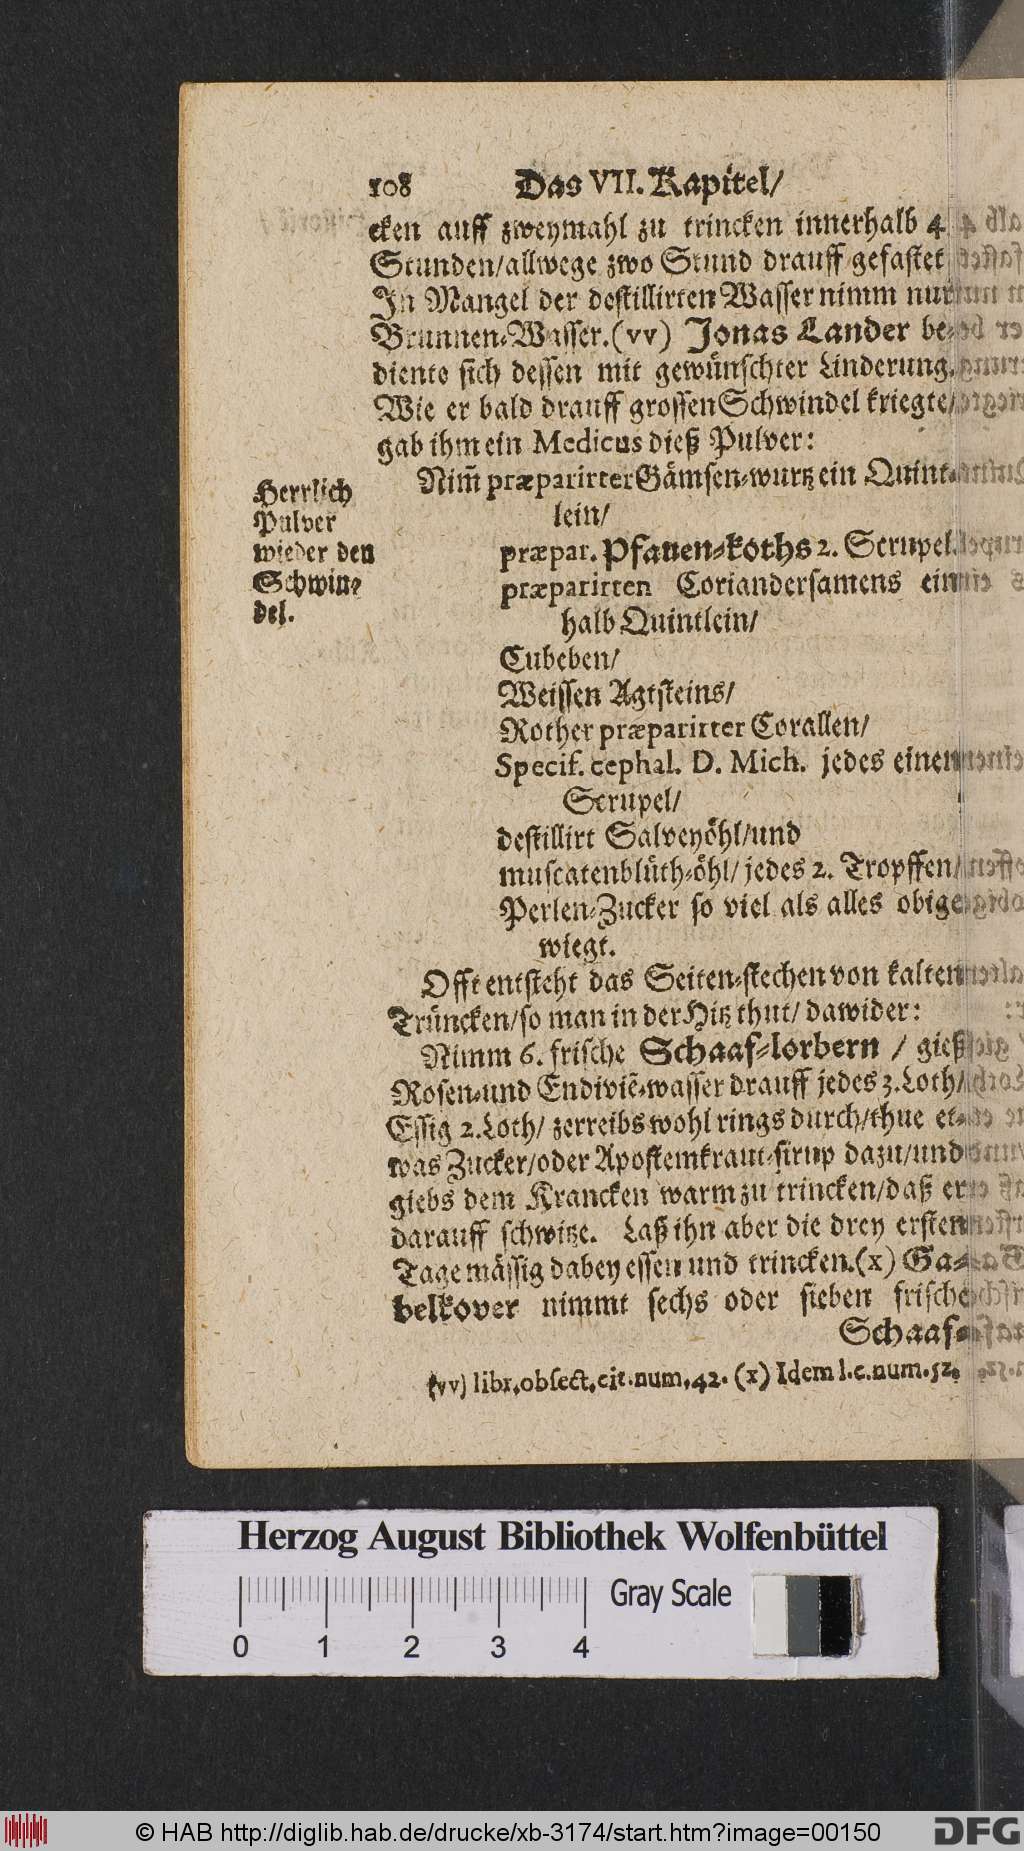 108 Das VII. Kapitel/
cken auff zweymahl zu trincken innerhalb 4
Stunden/allwege zwo Stund drauff gefastet
In Mangel der destillirten Wasser nimm nur
Brunnen-Wasser.(vv) Jonas Lander be-
diente sich dessen mit gewünschter Linderung.
Wie er bald drauff grossen Schwindel kriegte/
gab ihm ein Medicus dieß Pulver:
Herrlich
Pulver
wieder den
Schwin-
del.
Nim̃ præparirter Gämsen-wurtz ein Quint-
lein/
præpar. Pfauen-koths 2. Scrupel.
præparirten Coriandersamens ein
halb Quintlein/
Cubeben/
Weissen Agtsteins/
Rother præparirter Corallen/
Specif. cephal. D. Mich. jedes einen
Scrupel/
destillirt Salveyöhl/und
muscatenblüth-öhl/ jedes 2. Tropffen/
Perlen-Zucker so viel als alles obige
wiegt.
Offt entsteht das Seiten-stechen von kalten
Trüncken/so man in der Hitz thut/ dawider:
Nimm 6. frische Schaaf-lorbern / gieß
Rosen-und Endiviẽ-wasser drauff jedes 3.Loth/
Essig 2.Loth/ zerreibs wohl rings durch/thue et-
was Zucker/oder Apostemkraut-sirup dazu/und
giebs dem Krancken warm zu trincken/daß er
darauff schwitze. Laß ihn aber die drey ersten
Tage mässig dabey essen und trincken.(x) Ga-
belkover nimmt sechs oder sieben frische
Schaaf-
(vv) libr.obsect.cit.num.42. (x) Idem l.c.num.52.
Herzog August Bibliothek Wolfenbüttel
Gray Scale
0 1 2 3 4
© HAB http://diglib.hab.de/drucke/xb-3174/start.htm?image=00150
DFG